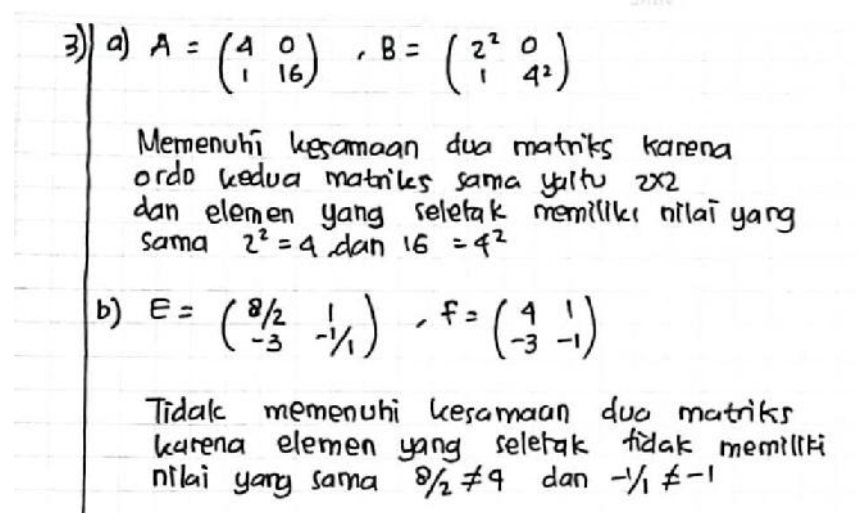 3) a) A = (4 0 , B = (2² 0
1 16) 1 4²)
Memenuhi kesamaan dua matriks karena
ordo kedua matriks sama yaitu 2x2
dan elemen yang seletak memiliki nilai yang
sama 2² = 4 dan 16 = 4²
b) E = (8/2 1 , f = (4 1
-3 -1/1) -3 -1)
Tidak memenuhi kesamaan dua matriks
karena elemen yang seletak tidak memiliki
nilai yang sama 8/2 ≠ 4 dan -1/1 ≠ -1